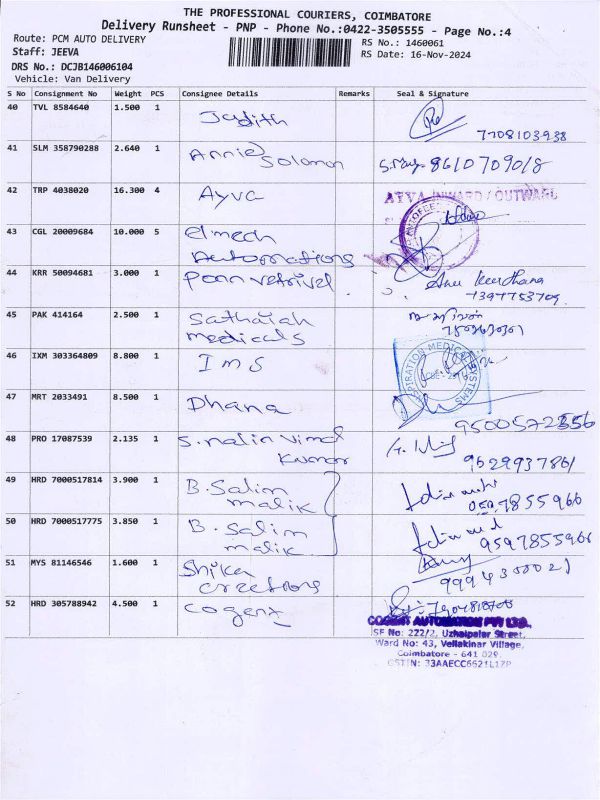 THE PROFESSIONAL COURIERS, COIMBATORE
Delivery Runsheet - PNP - Phone No.:0422-3505555 - Page No.:4
Route: PCM AUTO DELIVERY
RS No.: 1460061
Staff: JEEVA
RS Date: 16-Nov-2024
DRS No.: DCJB146006104
Vehicle: Van Delivery
S No Consignment No Weight PCS Consignee Details Remarks Seal & Signature
40 TVL 8584640 1.500 1 Judith 7708103938
41 SLM 358790288 2.640 1 Annie Solomon 8610709018
42 TRP 4038020 16.300 4 Ayva AYVA INWARD / OUTWARD
43 CGL 20009684 10.000 5 elmech
Automations
44 KRR 50094681 3.000 1 Ponn vetrivel
45 PAK 414164 2.500 1 Sathaiah
medicals
46 IXM 303364809 8.800 1 IMS
47 MRT 2033491 8.500 1 Dhana
9500572556
48 PRO 17087539 2.135 1 S. nalin vimal
Kumar 9629937861
49 HRD 7000517814 3.900 1 B. Salim
malik
50 HRD 7000517775 3.850 1 B. Salim
malik 9597855966
51 MYS 81146546 1.600 1 Shika
creations 9994300021
52 HRD 305788942 4.500 1 Cogent
COGENT AUTOMATION PVT LTD.,
SF No: 222/2, Uzhaipalar Street,
Ward No: 43, Vellakinar Village,
Coimbatore - 641 029.
GSTIN: 33AAECC6621L1ZP